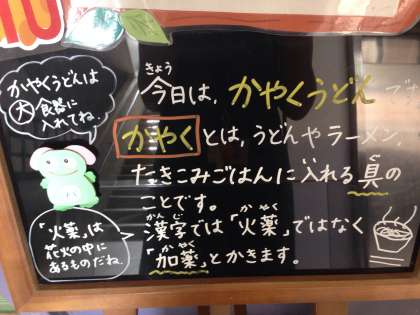 今日は、かやくうどんです
きょう
かやくとは、うどんやラーメン、
たきこみごはんに入れる具の
ぐ
ことです。
漢字では「火薬」ではなく
かんじ
かやく
「加薬」とかきます。
かやく
かやくうどんは
大食器に
入れてね。
「火薬」は
花火の中に
あるものだね。